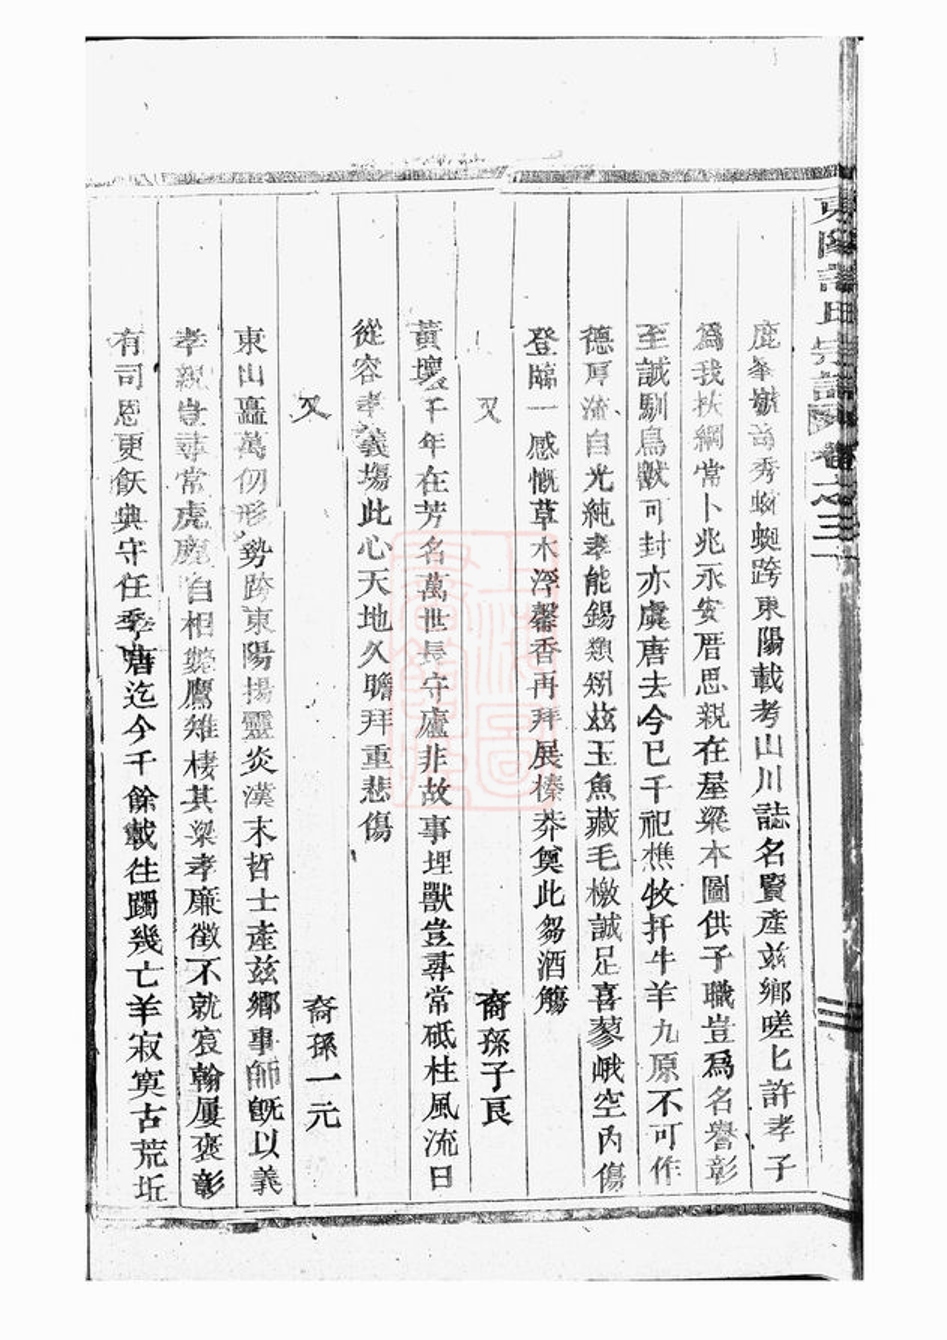 東陽許氏宗譜 卷之三
鹿峯嶽奇秀蜿蜒跨東陽載考山川誌名賢產兹鄉嗟匕許孝子
爲我扶綱常卜兆永安厝思親在屋梁本圖供子職豈爲名譽彰
至誠馴鳥獸可封亦虞唐去今已千祀樵牧扞牛羊九原不可作
德厚流自光純孝能錫類矧玆玉魚藏毛檄誠足喜蓼峨空內傷
登臨一感慨草木浮馨香再拜展榛莽奠此芻酒觴
又 裔孫子良
黃壤千年在芳名萬世長守廬非故事埋獸豈尋常砥柱風流日
從容孝義塲此心天地久瞻拜重悲傷
又 裔孫一元
東山矗萬仞形勢跨東陽揚靈炎漢末哲士產兹鄉事師旣以義
孝親豈尋常虎鹿自相斃鷹雉棲其梁孝廉徵不就宸翰屢褒彰
有司恩更飫典守任季唐迄今千餘載往躅幾亡羊寂寞古荒坵
上海圖書館藏